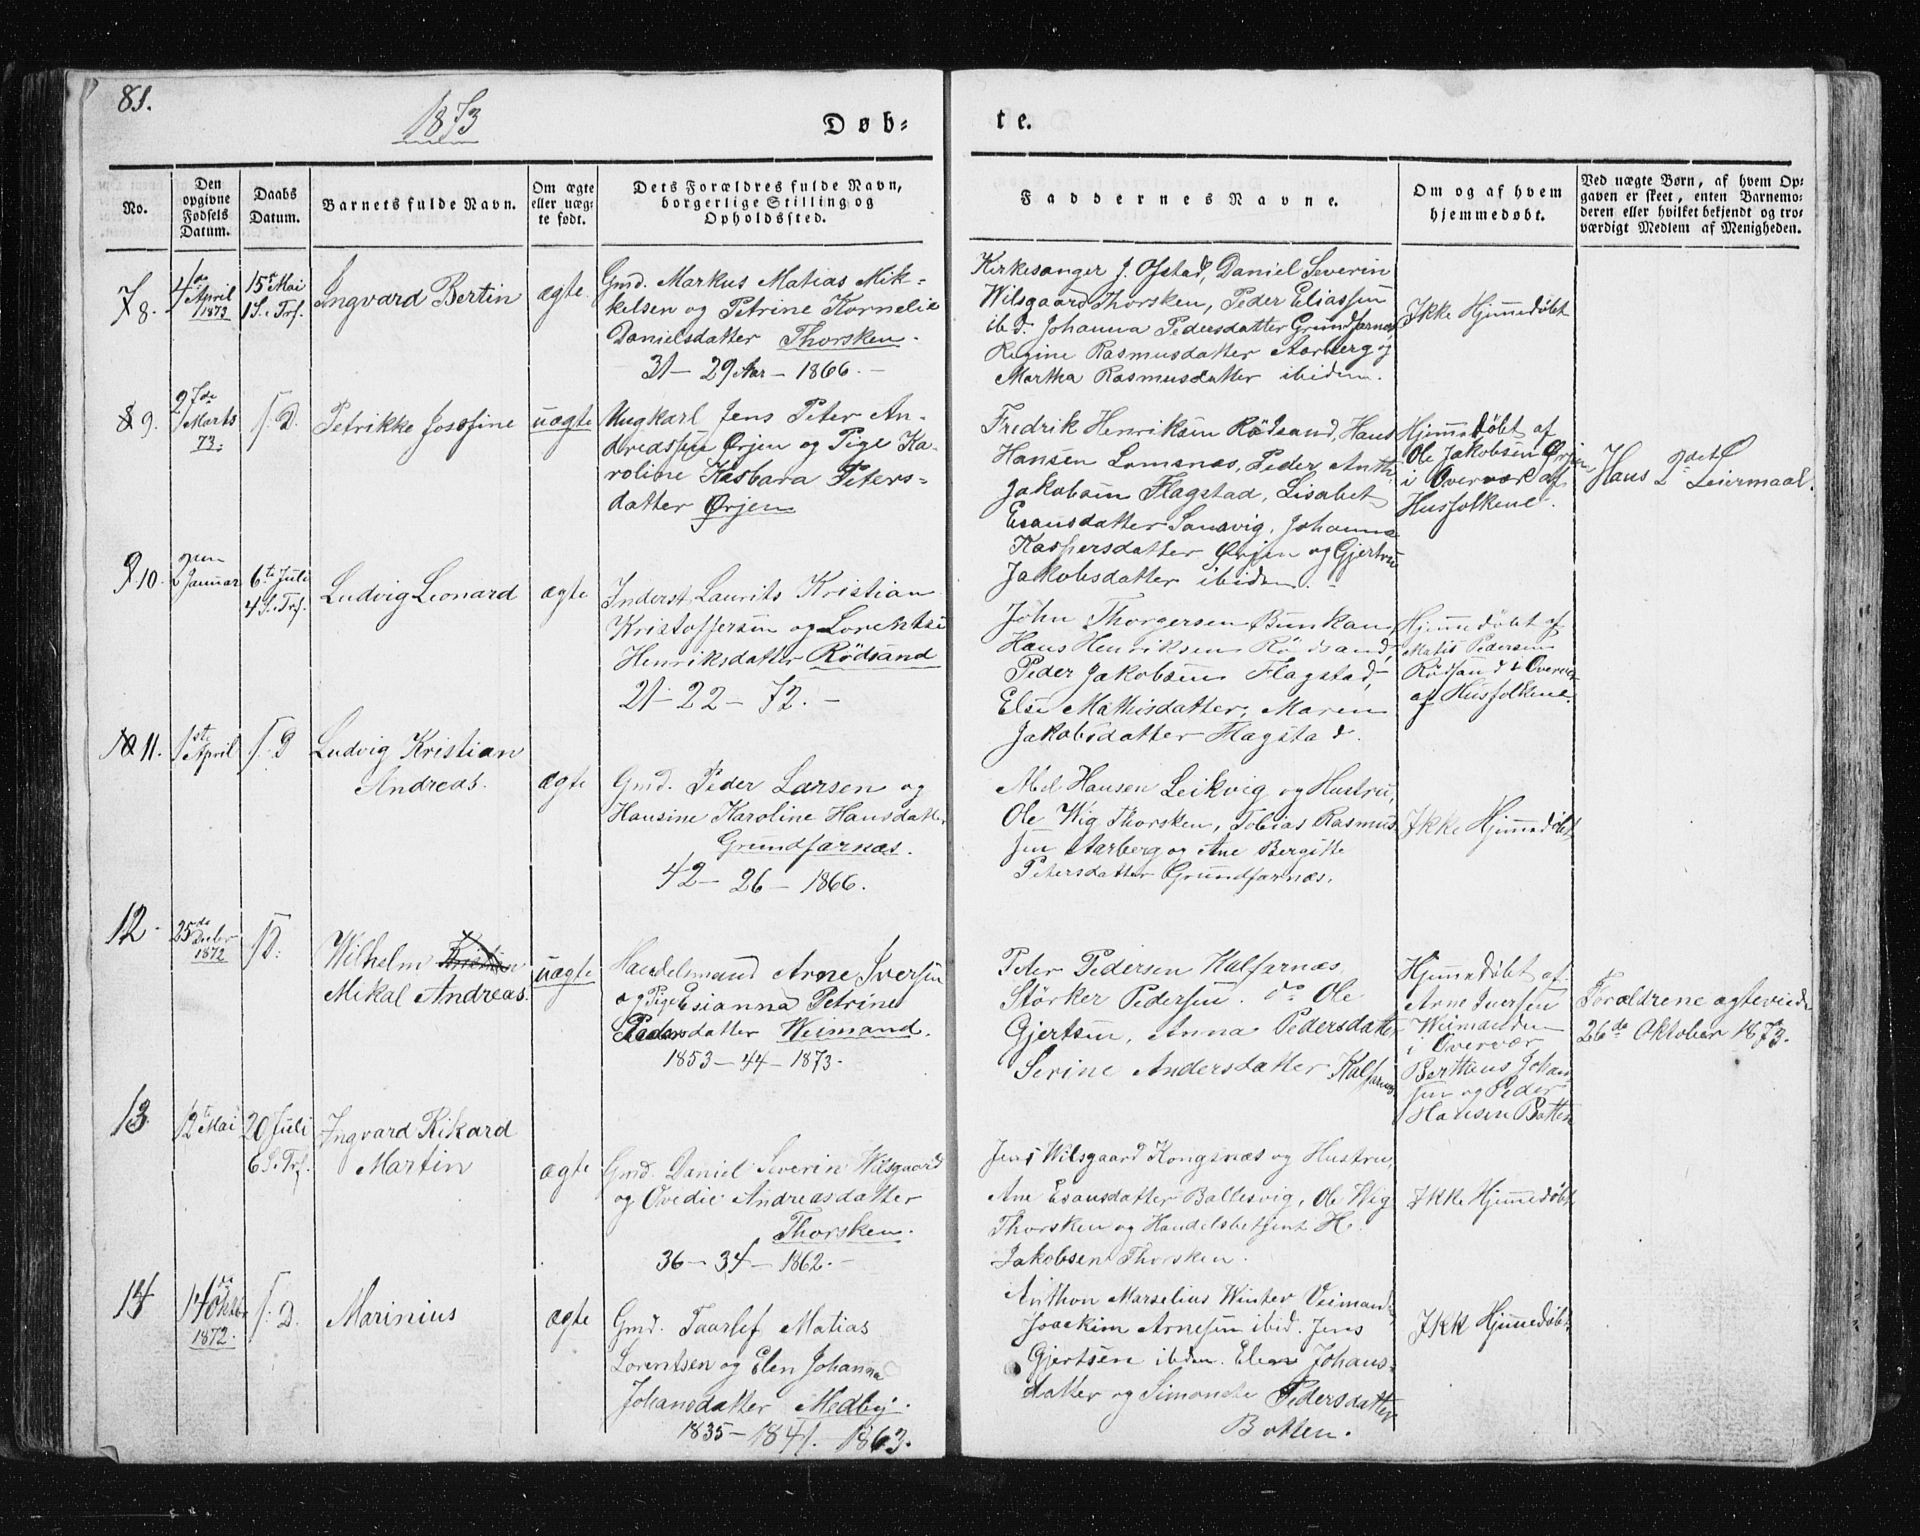 81.
1873
Døb-
te.
No.
Den opgivne Fødsels Datum.
Daabs Datum.
Barnets fulde Navn.
Om ægte eller uæg- te født.
Dets Forældres fulde Navn, borgerlige Stilling og Opholdssted.
Faddernes Navne.
Om og af hvem hjemmedøbt.
Ved uægte Børn, af hvem Op- gaven er skeet, enten Barnemo- deren eller hvilket bekjendt og tro- værdigt Medlem af Menigheden.
8.
4de April 1873
15de Mai
1 S. Trf.
Ingvard Bertin
ægte
Gmd. Markus Matias Mik-
kelsen og Petrine Kornelie
Danielsdatter Thorsken.
31 - 29 Aar - 1866. -
Kirkesanger J. Ofstad, Daniel Severin
Wilsgaard Thorsken, Peder Eliassen
ibd. Johanna Pedersdatter Grundfarnæs
Regine Rasmusdatter Aarberg og
Martha Rasmusdatter ibidem.
Ikke Hjemmedøbt
9.
27de Marts 73.
s. D.
Petrikke Josefine
uægte
Ungkarl Jens Peter An-
dreassen Ørjen og Pige Ka-
roline Kasbara Peters-
datter Ørjen
Fredrik Henriksen Rødsand, Hans
Hansen Lomsnæs, Peder Anth.
Jakobsen Flagstad, Lisabet
Esausdatter Sandvig, Johanna
Kaspersdatter Ørjen og Gjertru
Jakobsdatter ibidem. -
Hjemmedøbt af
Ole Jakobsen Ørjen
i Overvær af
Husfolkene.
Hans 2det Leiermaal.
10.
2den Januar
6te Juli
4 S. Trf.
Ludvig Leonard
ægte
Inderst Laurits Kristian
Kristoffersen og Lorentse
Henriksdatter Rødsand
21 - 22 - 72. -
John Thorgersen Bunkan,
Hans Henriksen Rødsand,
Peder Jakobsen Flagstad,
Else Mathisdatter, Maren
Jakobsdatter Flagstad.
Hjemmedøbt af
Matis Pedersen
Rødsand i Overvær
af Husfolkene.
11.
1ste April
s. D
Ludvig Kristian
Andreas.
ægte
Gmd. Peder Larsen og
Hansine Karoline Hansdatter
Grundfarnæs.
42 - 26 - 1866.
Abel Hansen Leikvig og Hustru,
Ole Wig Thorsken, Tobias Rasmus-
sen Aarberg og Ane Bergitte
Petersdatter Grundfarnæs.
Ikke Hjemmedøbt
12.
25de Decbr 1872
s. D.
Wilhelm
Mikal Andreas.
uægte
Handelsmand Arne Iversen
og Pige Esianna Petrine
Pedersdatter Weimand.
1853 - 44 - 1873.
Peter Pedersen Kalfarnæs,
Størker Pedersen do Ole
Gjertsen, Anna Pedersdatter
Serine Andersdatter Kalfarnæs
Hjemmedøbt af
Arne Iversen
Weimanden
i Overvær
Bertheus Johan-
sen og Peder
Hansen Botten
Forældrene ægteviede
26de Oktober 1873.
13.
12te Mai
20 Juli
6 S. Trf.
Ingvard Rikard
Martin
ægte
Gmd. Daniel Severin Wilsgaard
og Ovedie Andreasdatter
Thorsken.
36 - 34 - 1862. -
Jens Wilsgaard Kongsnæs og Hustru,
Ane Esausdatter Ballesvig, Ole Wig
Thorsken og Handelsbetjent H.
Jakobsen Thorsken.
Ikke Hjemmedøbt
14
14de Oktbr 1872.
s. D.
Marinius
ægte
Gmd. Taarlef Matias
Lorentsen og Elen Johanna
Johansdatter Medby.
1835 - 1841. 1863.
Anthon Marselius Winter Veimand,
Joackim Arnesen ibid. Jens
Gjertsen ibidem. Elen Johans-
datter og Simonette Pedersdatter
Botten.
Ikke Hjemmedøbt